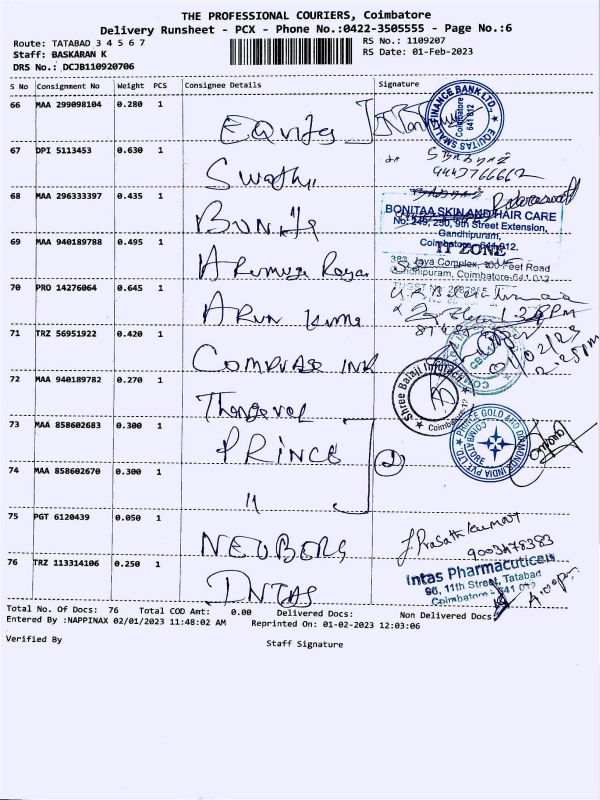 THE PROFESSIONAL COURIERS, Coimbatore
Delivery Runsheet - PCX - Phone No.:0422-3505555 - Page No.:6
Route: TATABAD 3 4 5 6 7
RS No.: 1109207
Staff: BASKARAN K
RS Date: 01-Feb-2023
DRS No.: DCJB110920706
S No Consignment No Weight PCS Consignee Details Signature
66 MAA 299098104 0.280 1 Equitas
EQUITAS SMALL FINANCE BANK LTD.,
Coimbatore
641 012
67 DPI 5113453 0.630 1 Swathi
9447766662
68 MAA 296333397 0.435 1
BONITAA SKIN AND HAIR CARE
No. 249, 250, 9th Street Extension,
Gandhipuram,
Coimbatore - 641 012.
69 MAA 940189788 0.495 1
IT ZONE
Java Complex, 100 Feet Road
Gandhipuram, Coimbatore-641 012
70 PRO 14276064 0.645 1 Arun Kumar
71 TRZ 56951922 0.420 1 Compuage Ink
01/02/23
2.25pm
72 MAA 940189782 0.270 1 Thangavel
Shree Balaji Infotech
Coimbatore
73 MAA 858602683 0.300 1 PRINCE
PRINCE GOLD AND DIAMONDS INDIA PVT. LTD.
COIMBATORE
74 MAA 858602670 0.300 1 11
2
75 PGT 6120439 0.050 1 NEUBERG
J. Prasath kumar
9003478383
76 TRZ 113314106 0.250 1 INTAS
Intas Pharmacuticels
96, 11th Street, Tatabad
Coimbatore - 641 012
Total No. Of Docs: 76 Total COD Amt: 0.00 Delivered Docs: Non Delivered Docs:
Entered By :NAPPINAX 02/01/2023 11:48:02 AM Reprinted On: 01-02-2023 12:03:06
Verified By
Staff Signature